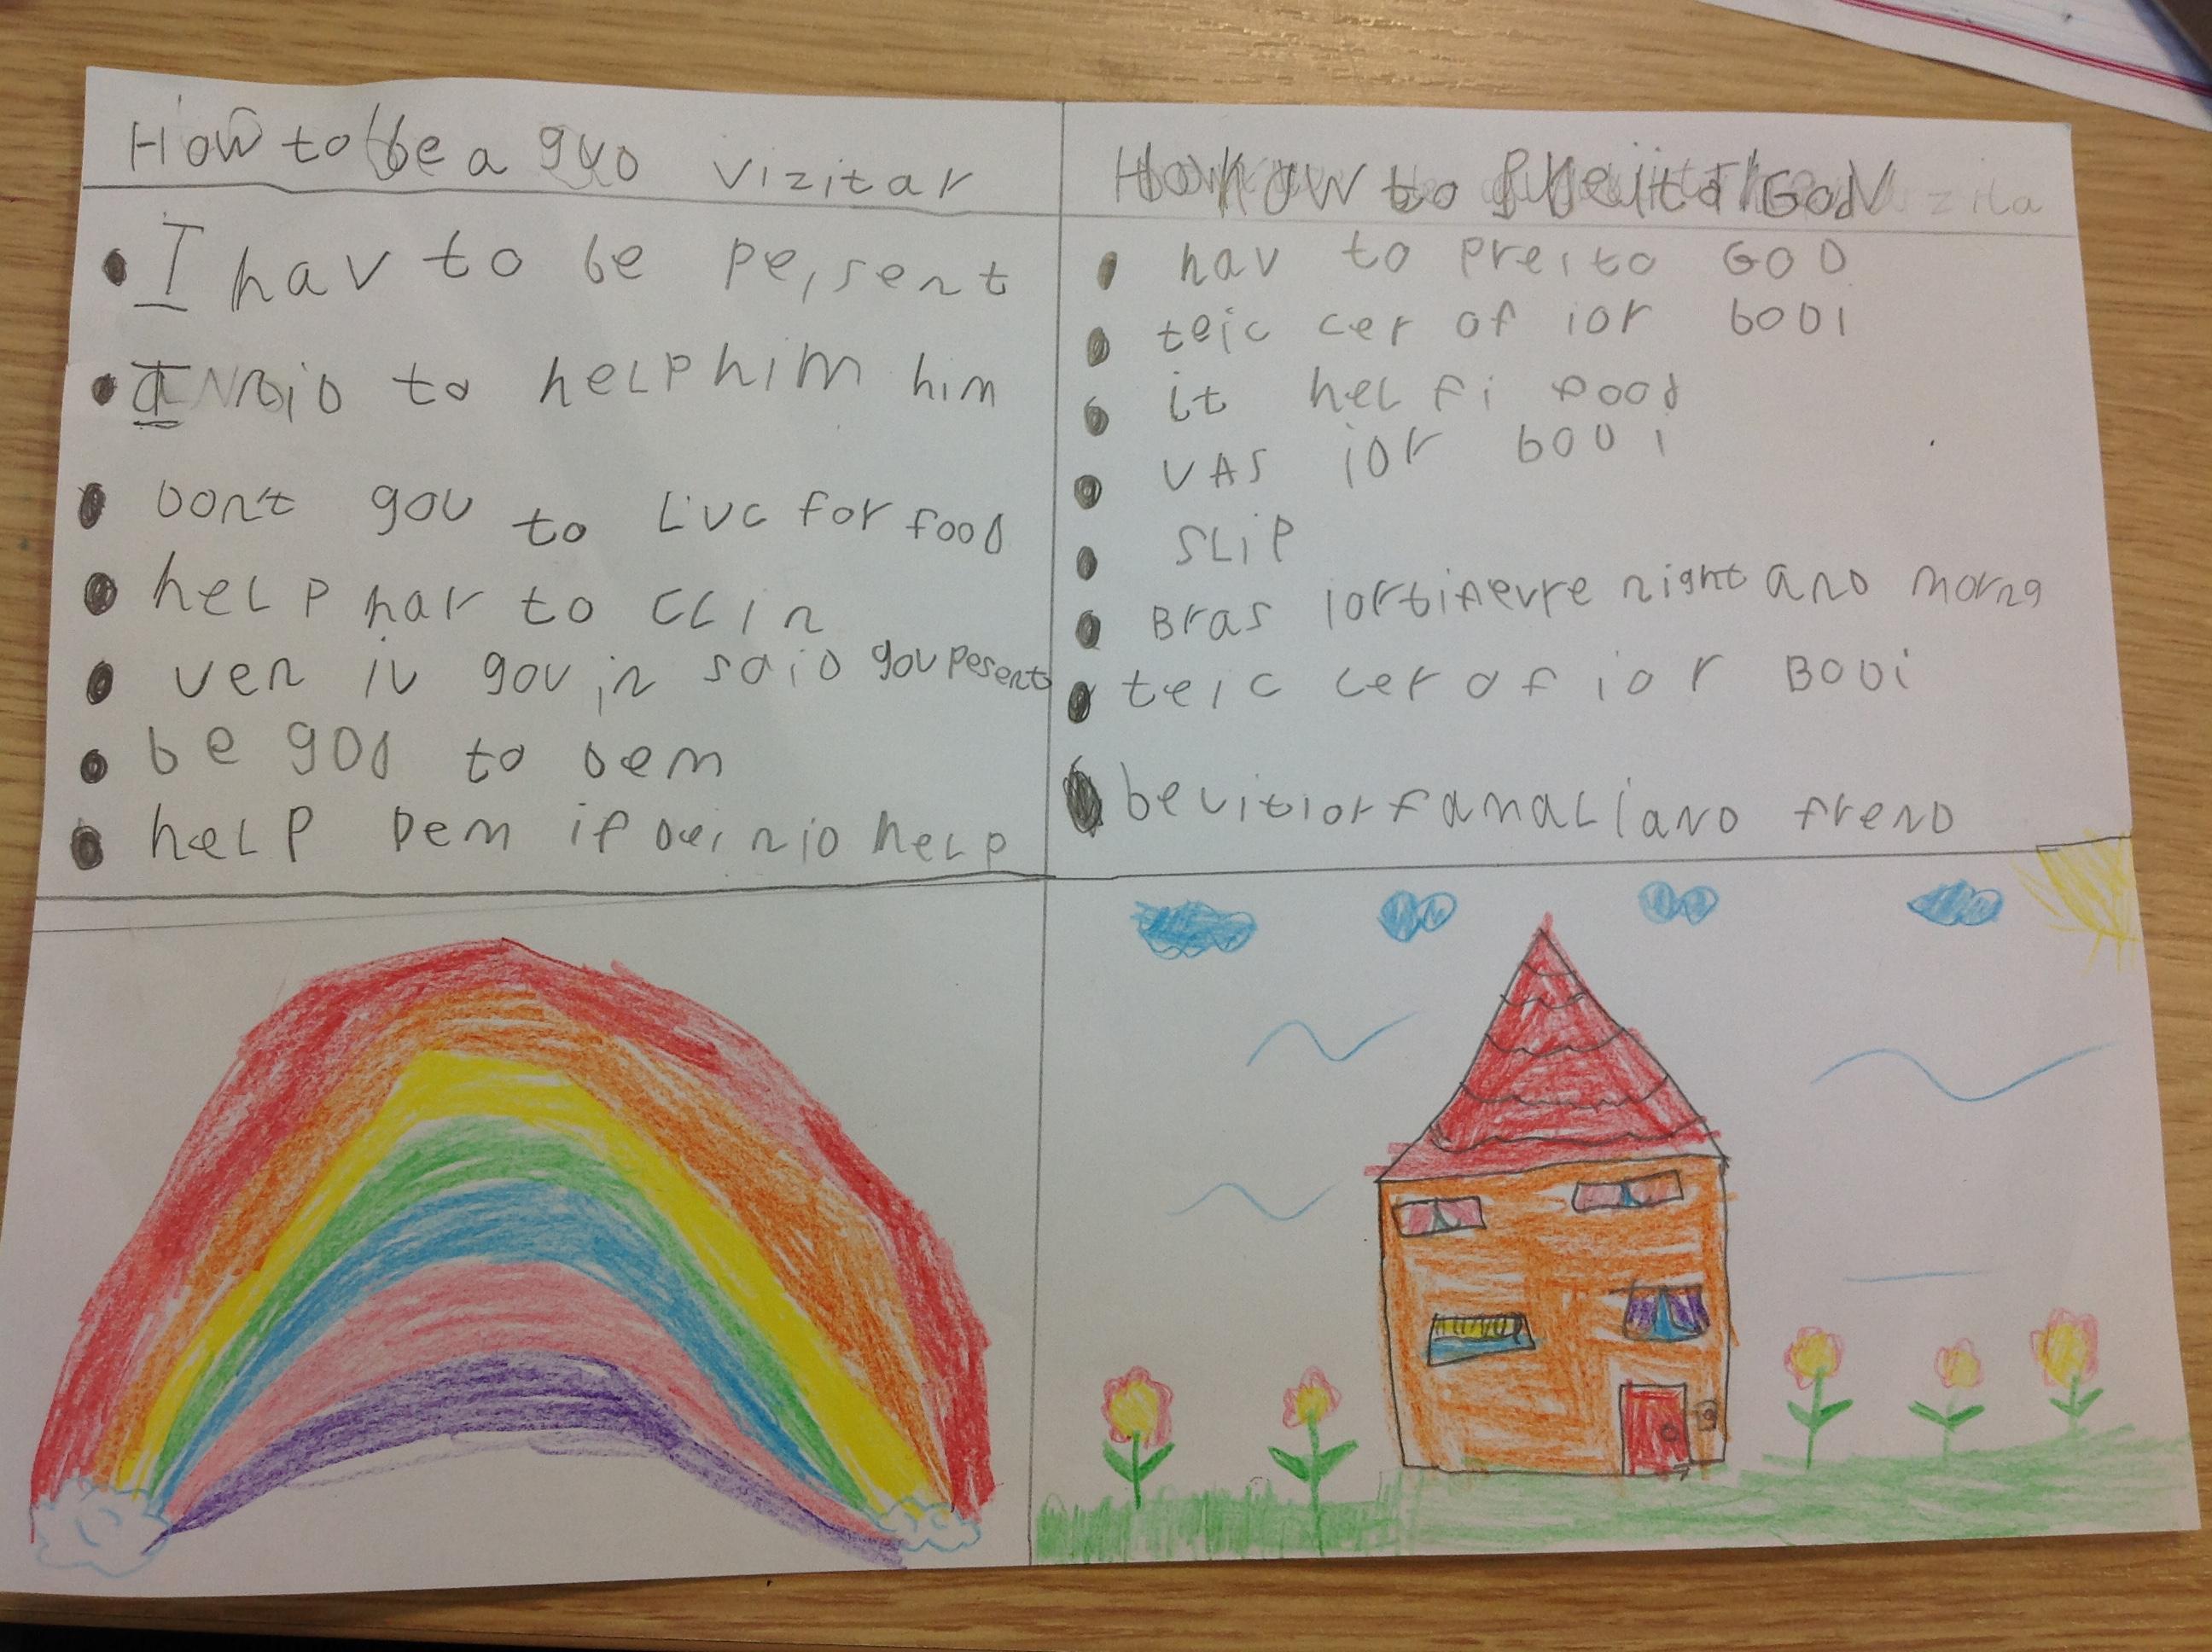 How to be a guo vizitar
I hav to be pesent
to help him him
Don't gou to Luc for food
help har to CLin
ven iu gou in said gou pesent
be god to Dem
help Dem if Dei nid help
How to Preito GoD
hav to preito GOD
teic cer of ior bodi
it helfi food
VAS ior bodi
SLiP
Bras iortifevre night and morng
teic cer of ior Bodi
be vit ior famali and frend